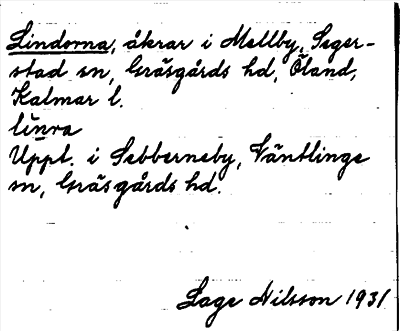 Lindorna, åkrar i Mellby, Seger-
stad sn, Gräsgårds hd, Öland,
Kalmar l.
linra
Uppt. i Sebberneby, Ventlinge
sn, Gräsgårds hd.
Lage Nilsson 1931